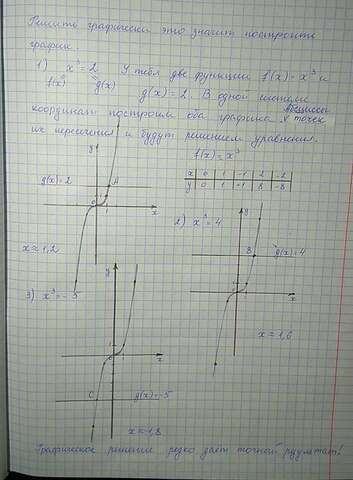 Решите графически это значит построить
график.
1) x³ = 2 У тебя две функции f(x) = x³ и
f(x) g(x) g(x) = 2. В одной системе
координат построим оба графика абсциссы
их пересечения и будут решением уравнения. точек
f(x) = x³
x 0 1 -1 2 -2
y 0 1 -1 8 -8
y
g(x) = 2 A
0 1 x
x ≈ 1,2
2) x³ = 4
y
B g(x) = 4
x
x ≈ 1,6
3) x³ = -5
y
1
x
C g(x) = -5
x ≈ -1,8
Графическое решение редко дает точной результат!